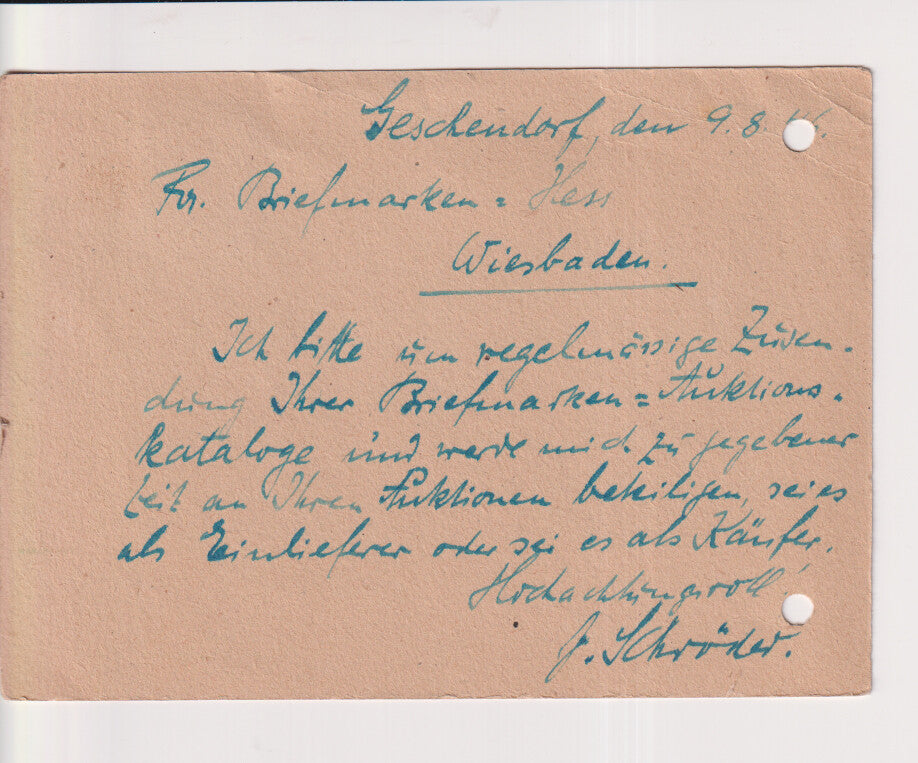 Geschendorf, den 9. 8.
Fa. Briefmarken = Hess
Wiesbaden.
Ich bitte um regelmässige Zusen-
dung Ihrer Briefmarken = Auktions-
kataloge und werde mich zu gegebener
Zeit an Ihren Auktionen beteiligen, sei es
als Einlieferer oder sei es als Käufer.
Hochachtungsvoll
J. Schröder.